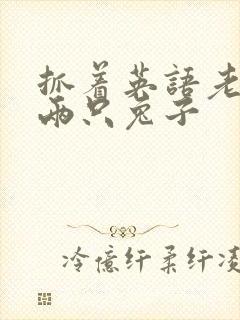 抓着英語老
两只兔子
冷億纤柔纤凌